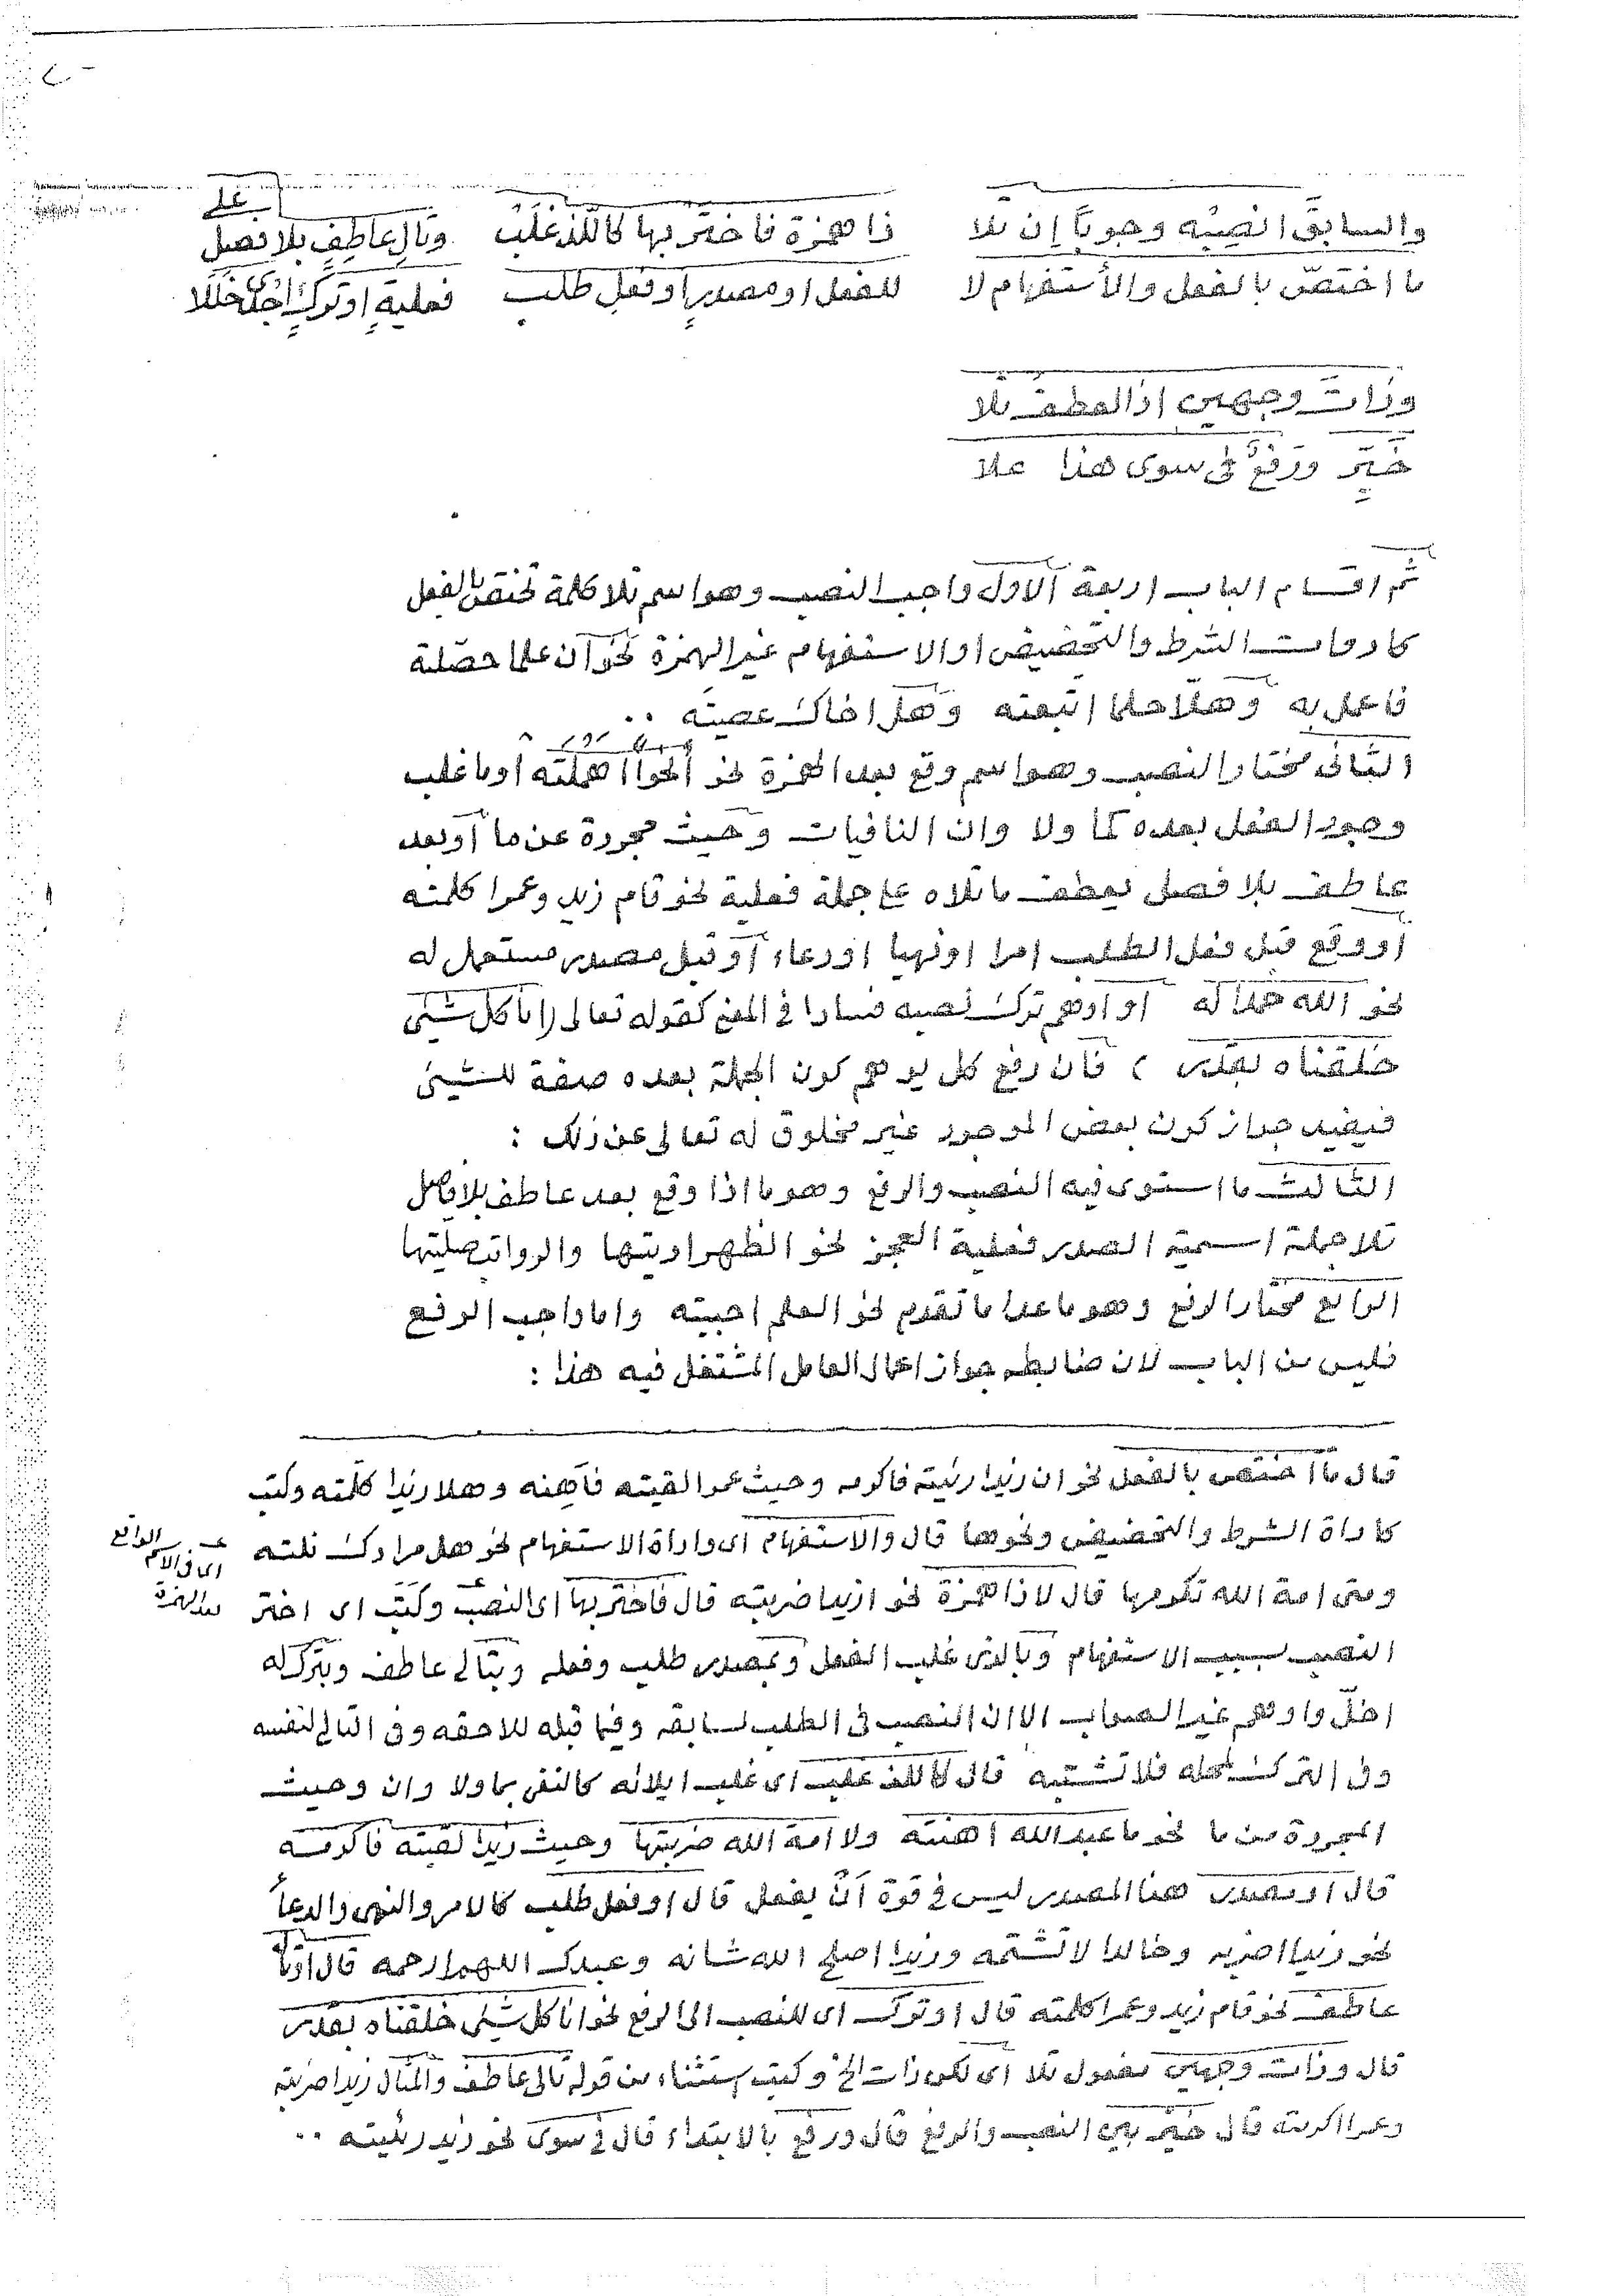 والسابقَ انصِبْه وجوباً إن تلا ذا همزة فاختر بها كاللذ غلب وتالِ عاطفٍ بلا فصل على
ما اختصّ بالفعل والأستفهام لا للفعل او مصدرٍ او فعلِ طلب فعليةٍ او تركٍ اخلّ خللا
وذات وجهين اذا لعطف تلا
خيِّر ورفعٌ فى سوى هذا علا
ثم اقسام الباب اربعة الاول واجب النصب وهو اسم تلا كلمة تختص بالفعل
كادوات الشرط والتحضيض او الاستفهام غير الهمزة نحو ان علما حصّلته
فاعمل به وهلّا حلما اتبعته وهل اخاك عصيته ..
الثانى مختار النصب وهو اسم وقع بعد الهمزة نحو ألحوا اهملته أوما غلب
وجود الفعل بعده كما ولا وان النافيات وحيث مجردة عن ما أوبعد
عاطف بلا فصل يعطف ما تلاه على جملة فعلية نحو قام زيد وعمرا كلمته
أووقع قبل فعل الطلب امرا اونهيا اودعاء أو قبل مصدر مستعمل له
نحو الله حمدا له او اوهم ترك نصبه فسادا فى المعنى كقوله تعالى (انا كل شيئى
خلقناه بقدر ) فان رفع كل يوهم كون الجملة بعده صفة للشيئ
فيفيد جواز كون بعض الموجود غير مخلوق له تعالى عن ذلك :
الثالث ما استوى فيه النصب والرفع وهو ما اذا وقع بعد عاطف بلا فاصل
تلا جملة اسمية الصدر فعلية العجز نحو الظهر اديتها والرواتب صليتها
الرابع مختار الرفع وهو ما عدا ما تقدم نحو العلم احببته واما واجب الرفع
فليس من الباب لان ضابطه جواز اعمال العامل المشتغل فيه هذا :
قال ما اختص بالفعل نحو ان زيدا رئيته فاكرمه وحيث عمرا لقيته فأهنه وهلا زيدا كلّمته وكتب
كاداة الشرط والتحضيض ونحوها قال والاستفهام اى واداة الاستفهام نحو هل مرادك نلته
ومتى امة الله تكرمها قال لا ذا همزة نحو ازيدا ضربته قال فاختر بها اى النصب وكتب اى اختر
اى فى الاسم الواقع
بعد الهمزة
النصب بسبب الاستفهام وبالذى غلب الفعل وبمصدر طلب وفعله وبتالى عاطف وبترك له
اخلّ واوهم غير الصواب الا ان النصب فى الطلب لسابقه وفيما قبله للاحقه وفى التالى لنفسه
وفى الترك لمحله فلا تشتبه قال كاللذ غلب اى غلب ايلائه كالنفى بما ولا وان وحيث
المجردة من ما نحو ما عبد الله اهنته ولا امة الله ضربتها وحيث زيدا لقيته فاكرمته
قال او مصدر هذا المصدر ليس فى قوة أنْ يفعل قال او فعل طلب كالامر والنهى والدعأ
نحو زيدا اضربه وخالدا لا تشتمه وزيدا اصلح الله شانه وعبدك اللهم ارحمه قال اوتال
عاطف نحو قام زيد وعمرا كلمته قال او ترك اى للنصب الى الرفع نحو انا كل شيئى خلقناه بقدر
قال وذات وجهين مفعول تلا اى لكن ذات الخ وكتب استثناء من قوله تالى عاطف والمثال زيدا ضربته
وعمرا اكرمته قال خيّر بين النصب والرفع قال ورفع بالابتداء قال فى سوى نحو زيد رئيته ..